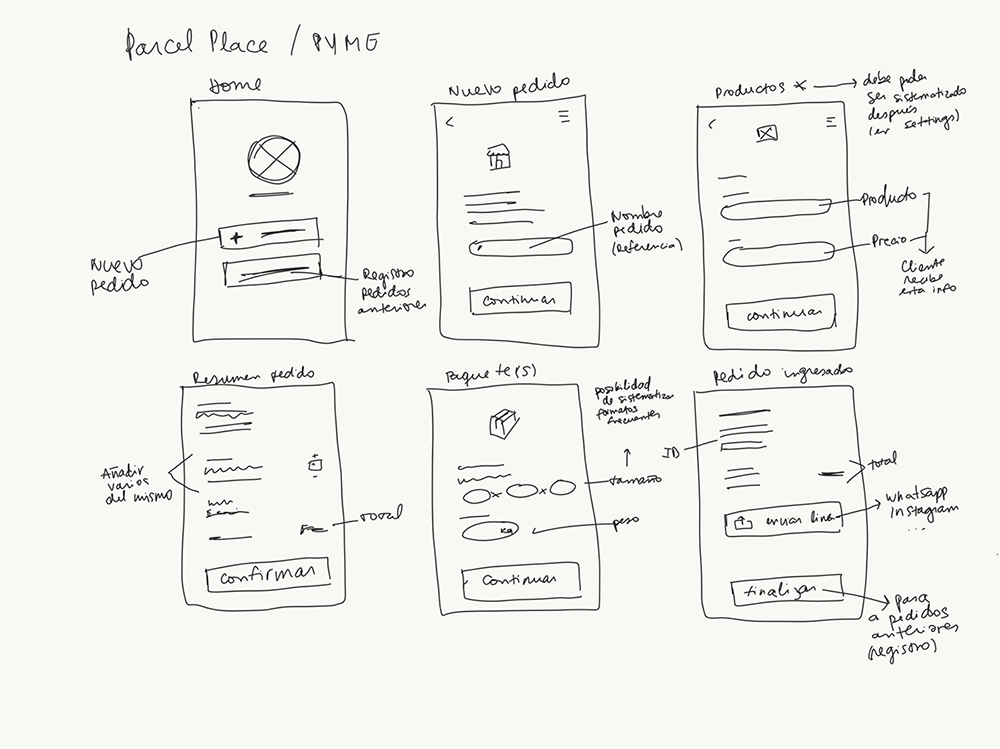 Parcel Place / PYME
Home
Nuevo
pedido
+
Registro
pedidos
anteriores
Nuevo pedido
Nombre
pedido
(Referencia)
continuar
Productos
debe poder
ser sistematizado
después
(en settings)
Producto
Precio
Cliente
recibe
esta info
continuar
Resumen pedido
Añadir
varios
del mismo
+
-
TOTAL
Confirmar
Paquete(s)
posibilidad
de sistematizar
formatos
frecuentes
x x
tamaño
KG
peso
Continuar
Pedido ingresado
ID
total
enviar link
whatsapp
instagram
...
finalizar
para
a pedidos
anteriores
(registro)